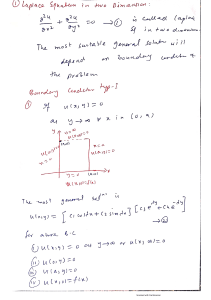 ① Laplace Equation in two Dimension:
∂²u/∂x² + ∂²u/∂y² = 0 → ① is called Laplace
Eq in two dimension
The most suitable general solution will
depend on boundary condition of
the problem
Boundary Condition type-I
① If u(x,y) = 0
as y → ∞ ∀ x in (0,a)
y
u(0,y)=0
x=0
x=a
y=0
The most general solⁿ is
u(x,y) = [c₁ cos λx + c₂ sin λx] [c₃ e^λy + c₄ e^-λy]
→ ②
for above B.C
i) u(x,y) = 0 as y→∞ or u(x,∞)=0
ii) u(0,y) = 0
iii) u(a,y) = 0
iv) u(x,0) = f(x)